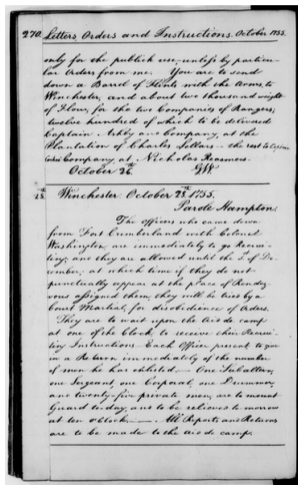 270. Letters, Orders and Instructions. October 1755.
only for the publick use, unless by particu-
lar Orders from me. You are to send
down a Barrel of Flints with the Arms, to
Winchester, and about two thousand weight
of Flour, for the two Companies of Rangers;
twelve hundred of which to be delivered
Captain Ashby and Company, at the
Plantation of Charles Sellars - the rest to Captain
Cockes Company, at Nicholas Reasmers.
October 26. GW.
28. Winchester, October 28th, 1755.
Parole Hampton.
The officers who came down
from Fort Cumberland with Colonel
Washington, are immediately to go Recrui-
ting; and they are allowed until the 1st of De-
cember, at which time if they do not
punctually appear at the place of Rendez-
vous assigned them, they will be tried by a
Court Martial, for disobedience of Orders.
They are to wait upon the Aid de camp
at one of the Clock, to receive their Recrui-
ting Instructions. Each Officer present to give
in a Return immediately of the number
of men he has enlisted. - One Subaltern,
one Sergeant, one Corporal, one Drummer,
and twenty-five private men, are to mount
Guard to-day, and to be relieved to-morrow
at ten o'clock. - All Reports and Returns
are to be made to the Aid de camp.